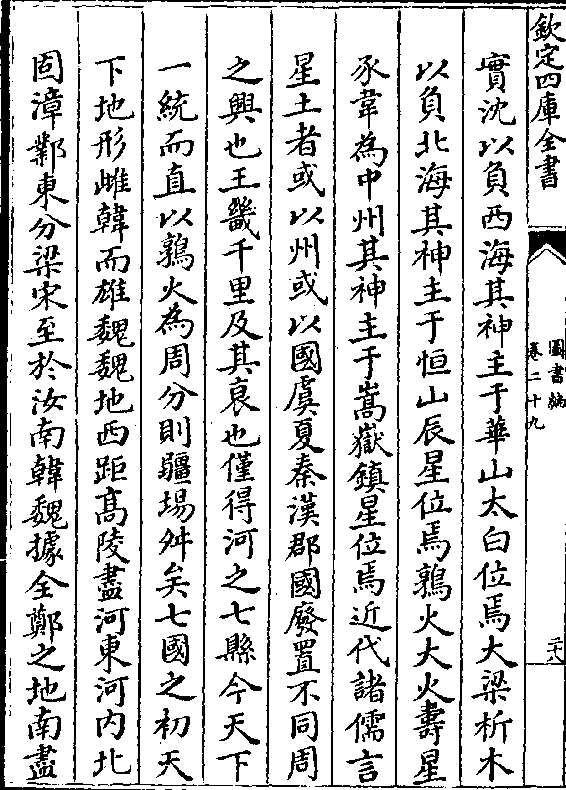 欽定四庫全書
圖書編
卷二十九
二十八
實沈以負西海其神主于華山太白位焉大梁析木
以負北海其神主于恒山辰星位焉鶉火大火壽星
豕韋為中州其神主于嵩嶽鎮星位焉近代諸儒言
星土者或以州或以國虞夏秦漢郡國廢置不同周
之興也王畿千里及其衰也僅得河之七縣今天下
一統而直以鶉火為周分則疆場舛矣七國之初天
下地形雌韓而雄魏魏地西距高陵盡河東河內北
固漳鄴東分梁宋至於汝南韓魏據全鄭之地南盡